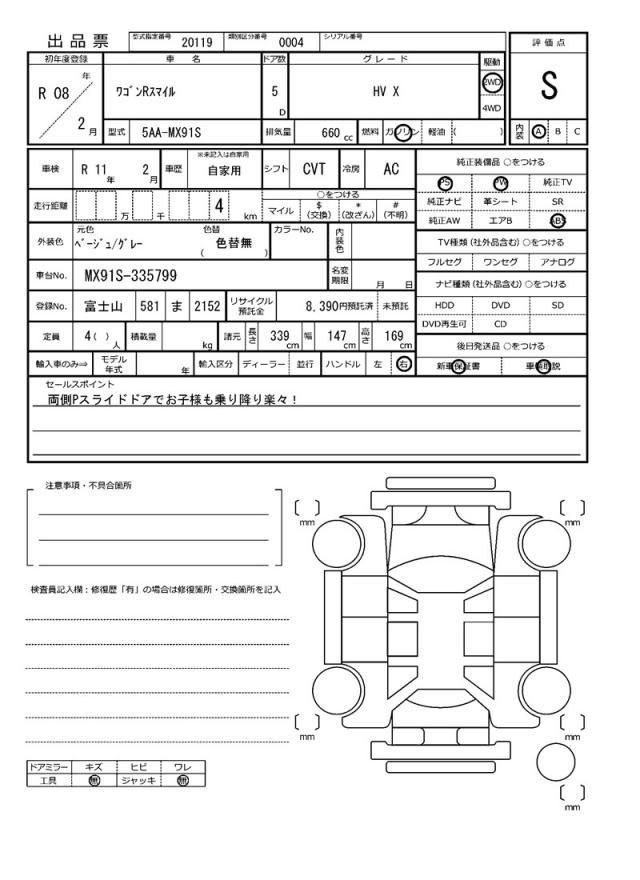 出 品 票 型式指定番号 20119 類別区分番号 0004 シリアル番号
評 価 点
S
内装 A B C
初年度登録 車 名 ドア数 グ レ ー ド 駆動
R 08 年 2 月 ﾜｺﾞﾝRｽﾏｲﾙ 5 D HV X 2WD 4WD
型式 5AA-MX91S 排気量 660 cc 燃料 ガソリン 軽油 ( )
車検 R 11 年 2 月 車歴 ※未記入は自家用 自家用 シフト CVT 冷房 AC
走行距離 万 千 4 km ○をつける
マイル $ (交換) * (改ざん) # (不明)
外装色 元色 ﾍﾞｰｼﾞｭ/ｸﾞﾚｰ 色替 ( 色替無 ) カラーNo. 内装色
車台No. MX91S-335799 名変期限 月 日
登録No. 富士山 581 ま 2152 リサイクル預託金 8,390円預託済 未預託
定員 4( ) 人 積載量 kg 諸元 長さ 339 cm 幅 147 cm 高さ 169 cm
輸入車のみ⇒ モデル年式 年 輸入区分 ディーラー 並行 ハンドル 左 右
純正装備品 ○をつける
PS PW 純正TV
純正ナビ 革シート SR
純正AW エアB ABS
TV種類 (社外品含む) ○をつける
フルセグ ワンセグ アナログ
ナビ種類 (社外品含む) ○をつける
HDD DVD SD
DVD再生可 CD
後日発送品 ○をつける
新車保証書 車輌取説
セールスポイント
両側Pスライドドアでお子様も乗り降り楽々！
注意事項・不具合箇所
検査員記入欄：修復歴「有」の場合は修復箇所・交換箇所を記入
ドアミラー キズ ヒビ ワレ
工具 無 ジャッキ 無
mm
mm
mm
mm
mm